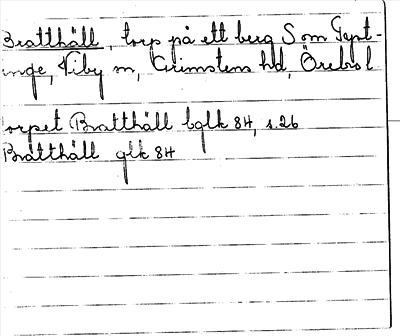 Bratthäll, torp på ett berg S om Tynt-
inge, Viby sn, Grimstens hd, Örebro l
orpet Bratthäll bglk 84, s. 26
Bratthäll glk 84